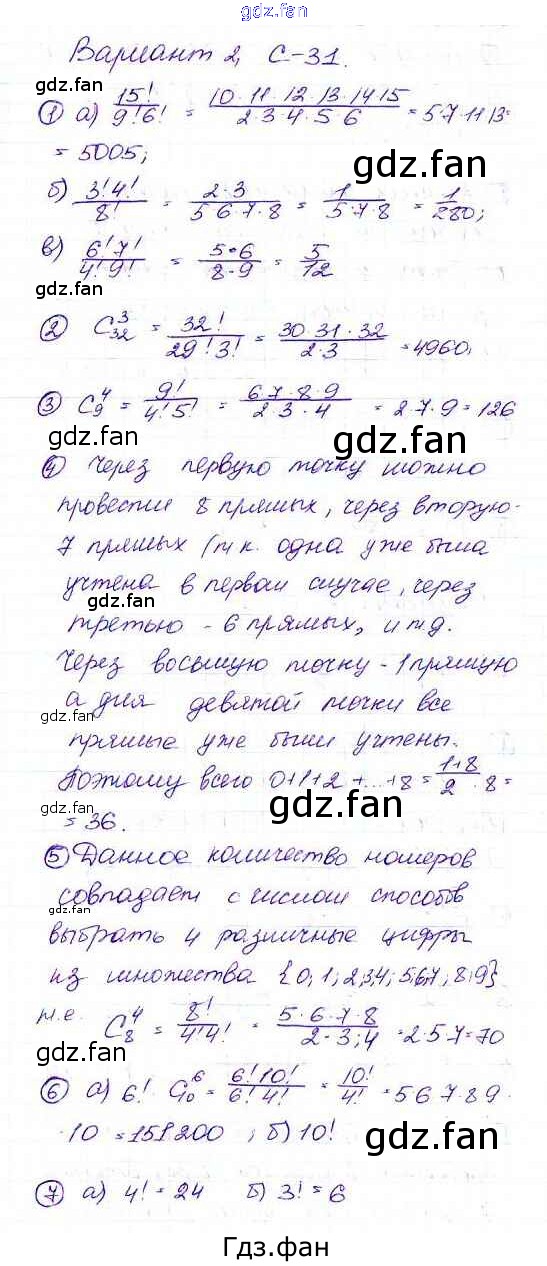 gdz.fan
Вариант 2, С-31.
gdz.fan
① а) 15!/9!6! = 10·11·12·13·14·15/2·3·4·5·6 = 5·7·11·13=
= 5005;
gdz.fan
б) 3!4!/8! = 2·3/5·6·7·8 = 1/5·7·8 = 1/280;
в) 6!7!/4!9! = 5·6/8·9 = 5/12
gdz.fan
② C³₃₂ = 32!/29!3! = 30·31·32/2·3 = 4960.
gdz.fan
③ C⁴₉ = 9!/4!5! = 6·7·8·9/2·3·4 = 2·7·9 = 126
gdz.fan gdz.fan
④ Через первую точку можно
провести 8 прямых, через вторую-
7 прямых (т.к. одна уже была
учтена в первом случае, через
gdz.fan
третью - 6 прямых, и т.д.
Через восьмую точку - 1 прямую
а для девятой точки все
gdz.fan
прямые уже были учтены.
Поэтому всего 0+1+2+...+8 = 1+8/2 · 8 =
gdz.fan gdz.fan
= 36.
⑤ Данное количество номеров
совпадает с числом способов
gdz.fan
выбрать 4 различные цифры
из множества {0,1,2,3,4,5,6,7,8,9}
т.е. C⁴₈ = 8!/4!4! = 5·6·7·8/2·3·4 = 2·5·7=70
gdz.fan gdz.fan
⑥ а) 6!·C⁶₁₀ = 6!10!/6!4! = 10!/4! = 5·6·7·8·9·
·10 = 151200; б) 10!
gdz.fan
⑦ а) 4! = 24 б) 3! = 6
gdz.fan
Гдз.фан